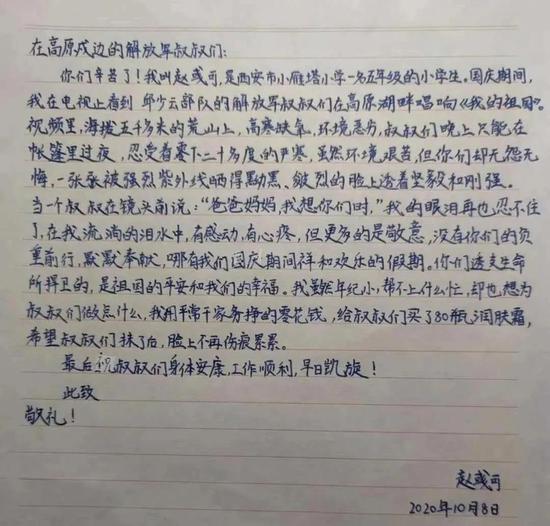 在高原戍边的解放军叔叔们：
你们辛苦了！我叫赵或可，是西安市小雁塔小学一名五年级的小学生。国庆期间，
我在电视上看到邱少云部队的解放军叔叔们在高原湖畔唱响《我的祖国》。
视频里，海拨五千多米的荒山上，高寒缺氧，环境恶劣，叔叔们晚上只能在
帐篷里过夜，忍受着零下二十多度的严寒，虽然环境艰苦，但你们却无怨无
悔，一张张被强烈紫外线晒得黝黑、皴裂的脸上透着坚毅和刚强。
当一个叔叔在镜头前说：“爸爸妈妈，我想你们时，”我的眼泪再也忍不住
了，在我流淌的泪水中，有感动，有心疼，但更多的是敬意，没有你们的负
重前行，默默奉献，哪有我们国庆期间祥和欢乐的假期。你们透支生命
所捍卫的，是祖国的平安和我们的幸福。我虽然年纪小，帮不上什么忙，却也想为
叔叔们做点什么，我用平常干家务挣的零花钱，给叔叔们买了80瓶润肤霜，
希望叔叔们抹了后，脸上不再伤痕累累。
最后祝叔叔们身体安康，工作顺利，早日凯旋！
此致
敬礼！
赵或可
2020年10月8日